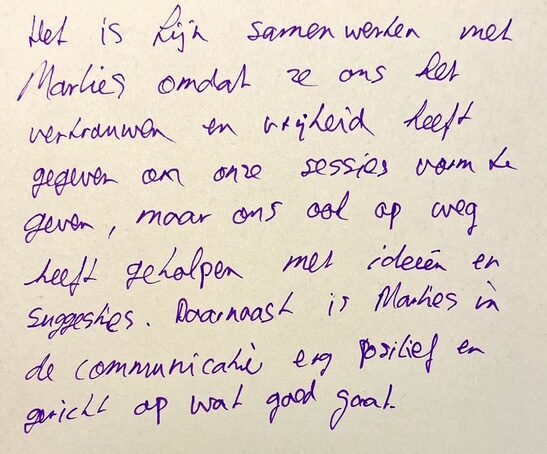 Het is fijn samenwerken met
Marlies omdat ze ons het
vertrouwen en vrijheid heeft
gegeven om onze sessies vorm te
geven, maar ons ook op weg
heeft geholpen met ideeën en
suggesties. Daarnaast is Marlies in
de communicatie erg positief en
gericht op wat goed gaat.